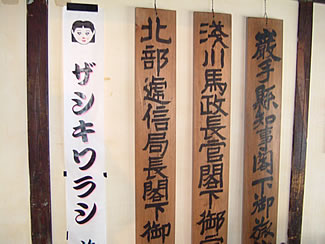 巖手縣知事閣下御旅
淺川馬政長官閣下御
北部遞信局長閣下御
ザシキワラシ